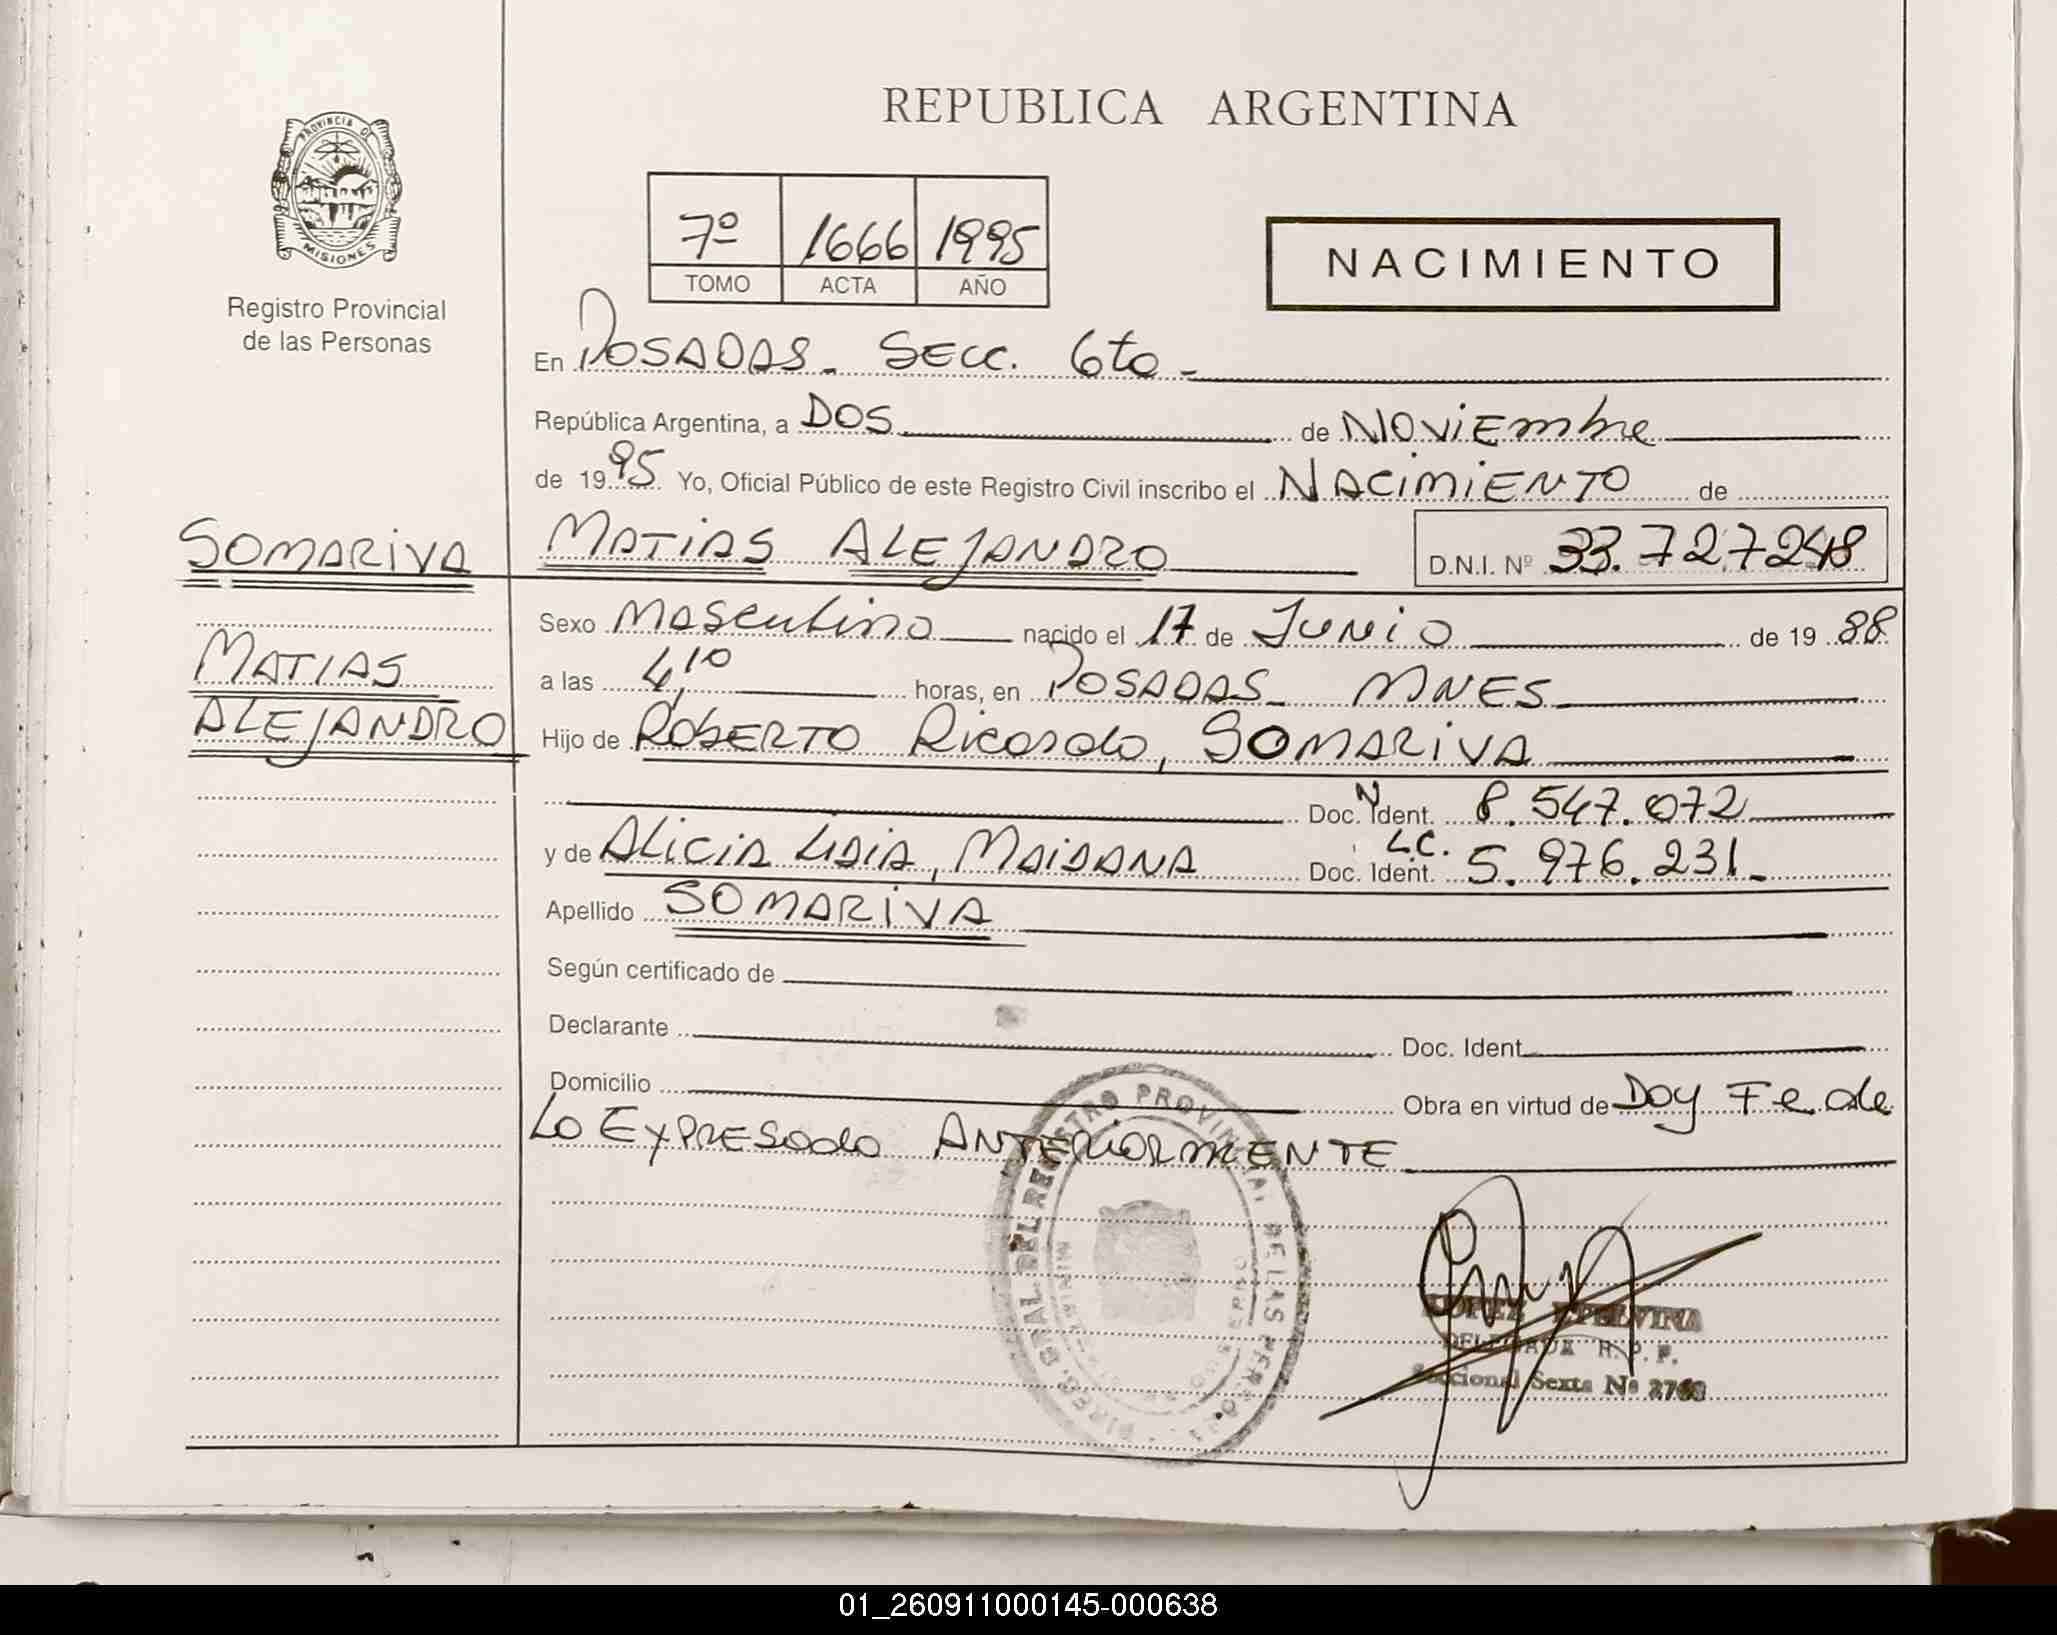 REPUBLICA ARGENTINA
PROVINCIA DE
MISIONES
Registro Provincial
de las Personas
7º 1666 1995
TOMO ACTA AÑO
NACIMIENTO
En POSADAS - SECC. 6ta -
República Argentina, a DOS de NOViEmbre
de 1995 Yo, Oficial Público de este Registro Civil inscribo el NACimiENTO de
SOMARiVA
MATiAS ALEJANDRO D.N.I. Nº 33.727248
Sexo Masculino nacido el 17 de JUNiO de 1988
MATIAS
a las 4,10 horas, en POSADAS - MNES
ALEJANDRO
Hijo de ROBERTO Ricardo, SOMARiVA
Doc. Ident. 8.547.072
y de ALiCiA LiDiA, MAiDANA Doc. Ident. L.C. 5.976.231-
Apellido SOMARiVA
Según certificado de
Declarante Doc. Ident.
Domicilio Obra en virtud de Doy Fe de
Lo EXPRESado ANTERiORMENTE
DIREC. GRAL. DEL REGISTRO PROVINCIAL DE LAS PERSONAS
LOPEZ ETELVINA
DELEGADA R.P.P.
Seccional Sexta Nº
01_260911000145-000638